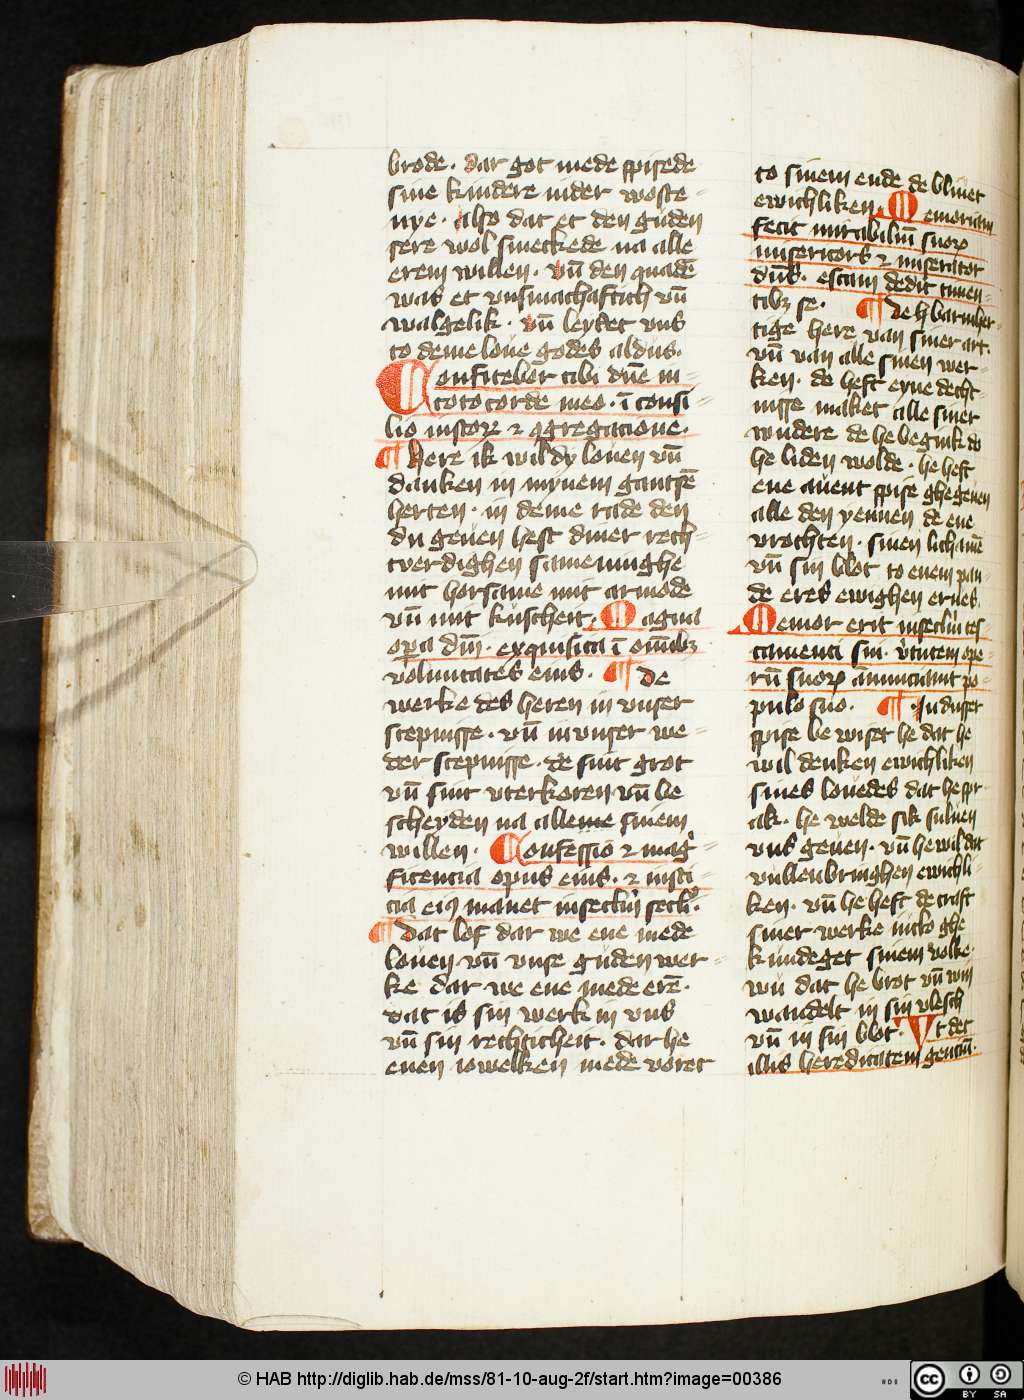 brode · dar got mede spisede
sine kindere in der woste⸗
nye · also dat et den guden
sere wol smeckede na alle
erem willen · vn̄ den quadē
was et vnsmachaftich vn̄
walgelik · vn̄ leyſtet vns
to deme loue godes aldus ·
Confitebor tibi dn̄e in
toto corde meo · ī consi⸗
lio iustoꝝ ⁊ ꝯgregacione ·
¶ Here ik wil dy louen vn̄
danken in mynem gantsē
herten · in deme rade den
du geuen hest diner rech⸗
tverdighen sameninghe
mit horsame mit armode
vn̄ mit kuscheit · Magna
opera dn̄i · exquisita ī om̄ibꝫ
voluntates eius · ¶ de
werke des heren in vnser
scepnisse · vn̄ in vnser we⸗
der scepnisse · de sint grot
vn̄ sint vterkoren vn̄ be
scheyden na alleme sinem
willen · Confessio ⁊ mag⸗
ficencia opus eius · ⁊ iusti⸗
cia eiꝯ manet in secl'm secl'i ·
¶ Dat lof dar we ene mede
louen · vn̄ vnse guden wer⸗
ke dar we ene mede erē ·
dat is sin werk in vns
vn̄ sin rechticheit · dar he
enen iowelken mede voret
to sinem ende de bliuet
ewichliken · Memoriam
fecit mirabiliū suoꝝ
misericors ⁊ miserator
dn̄s · escam dedit timen⸗
tibꝫ se · ¶ de h barmher⸗
tige here van siner art ·
vn̄ van alle sinen wer⸗
ken · de heft eyne decht⸗
nisse maket alle siner
wndere de he begink do
he liden wolde · he heft
ene auent spise ghegeuen
alle den yennen de ene
vrochten · sinen lichamē
vn̄ sin blot to enem pan⸗
de eres ewighen erues ·
Memor erit in seclm̄ tes
tamenti sui · v'tutem ope⸗
rū suoꝝ ānunciauit po⸗
pulo suo · ¶ In dusser
spise be wiset he dat he
wil denken ewichliken
sines louedes dat he spr⸗
ak · he wolde sik suluen
vns geuen · vn̄ he wil dat
vullenbringhen ewichli⸗
ken · vn̄ he heft de craft
siner werke nicko ghe
kundeget sinem volke ·
wu dat he brot vn̄ win
wandelt in sin vlesch
vn̄ in sin blot · Vt det
illis hereditatem genciū ·
© HAB http://diglib.hab.de/mss/81-10-aug-2f/start.htm?image=00386
cc BY SA